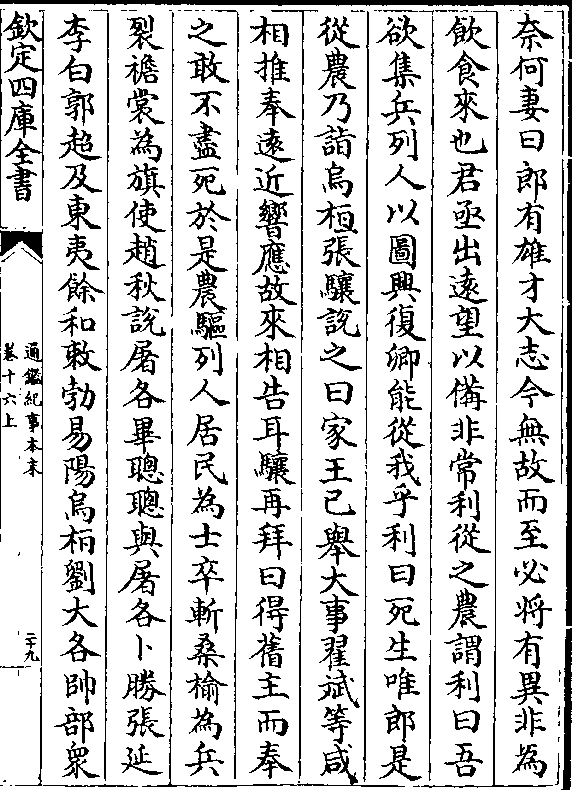 奈何妻曰郎有雄才大志今無故而至必將有異非為
飲食來也君亟出遠望以備非常利從之農謂利曰吾
欲集兵列人以圖興復卿能從我乎利曰死生唯郎是
從農乃詣烏桓張驤説之曰家王已舉大事翟斌等咸
相推奉遠近響應故來相告耳驤再拜曰得舊主而奉
之敢不盡死於是農驅列人居民為士卒斬桑榆為兵
裂襜裳為旗使趙秋説屠各畢聰聰與屠各卜勝張延
李白郭超及東夷餘和敕勃易陽烏桓劉大各帥部衆
欽定四庫全書
通鑑紀事本末
卷十六上
二十九